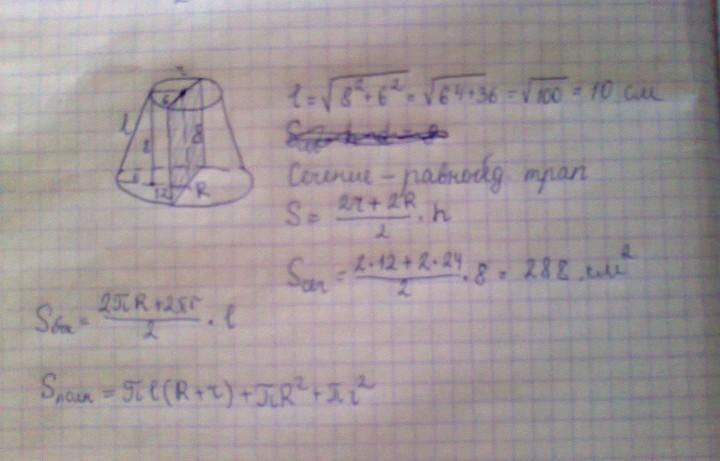 r
6
l
8
8
6
12
R
l = √8² + 6² = √64 + 36 = √100 = 10 см
Сечение – равнобед трап
S = (2r + 2R)/2 · h
Sсеч = (2·12 + 2·24)/2 · 8 = 288 см²
Sбок = (2πR + 2πr)/2 · l
Sполн = πl(R + r) + πR² + πr²